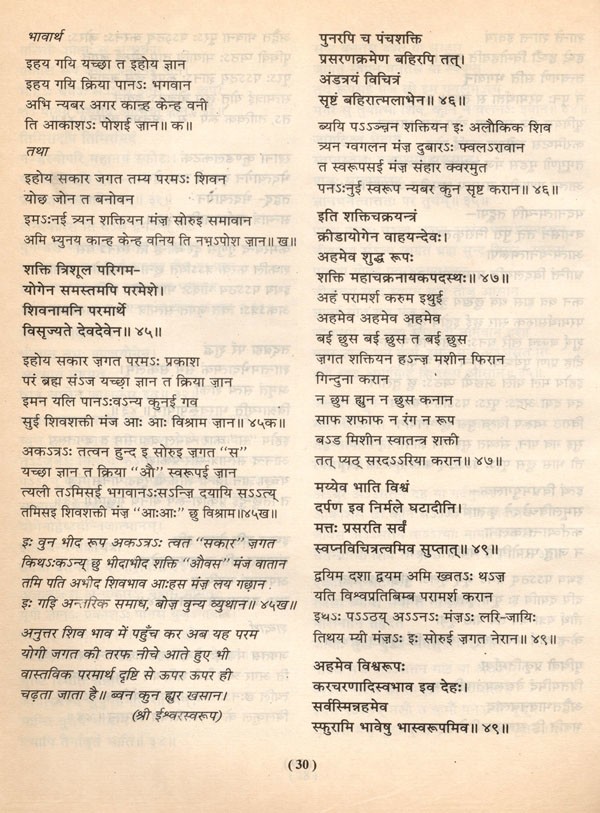 भावार्थ
इहय गयि यच्छा त इहोय ज्ञान
इहय गयि क्रिया पानऽः भगवान
अभि न्यबर अगर कान्ह केन्ह वनी
ति आकाशऽः पोशई ज़ान॥ क॥
तथा
इहोय सकार जगत तम्य परमऽः शिवन
योछ ज़ोन त बनोवन
इमऽःनई त्र्यन शक्तियन मंज़ सोरुइ समावान
अमि भ्युनय कान्ह केन्ह वनिय ति नभऽपोश ज़ान॥ ख॥
शक्ति त्रिशूल परिगम-
योगेन समस्तमपि परमेशे।
शिवनामनि परमार्थे
विसृज्यते देवदेवेन॥ ४५॥
इहोय सकार ज़गत परमऽः प्रकाश
परं ब्रह्म संऽज यच्छा ज्ञान त क्रिया ज़ान
इमन यलि पानऽःवऽन्य कुनई गव
सुई शिवशक्ती मंज आः आः विश्राम ज़ान॥ ४५क॥
अकऽत्रऽः तत्वन हुन्द इ सोरुइ ज़गत “स”
यच्छा ज्ञान त क्रिया “औ” स्वरूपई ज़ान
त्यली तऽमिसई भगवानऽःसऽन्ज़ि दयायि सऽऽत्य्
तमिसइ शिवशक्ती मंज़ “आःआः” छु विश्राम॥४५ख॥
इः वुन भीद रूप अकऽत्रऽः त्वत “सकार” ज़गत
किथऽःकऽन्य् छु भीदाभीद शक्ति “औवस” मंज़ वातान
तमि पति अभीद शिवभाव आःहस मंज़ लय गछ़ान
इः गइ अन्तरिक समाध, बोज़ वुन्य व्युथान॥ ४५ख॥
अनुत्तर शिव भाव में पहुँच कर अब यह परम
योगी जगत की तरफ नीचे आते हुए भी
वास्तविक परमार्थ दृष्टि से ऊपर ऊपर ही
चढ़ता जाता है॥ ब्वन कुन ह्युर खसान।
(श्री ईश्वरस्वरूप)
पुनरपि च पंचशक्ति
प्रसरणक्रमेण बहिरपि तत्।
अंडत्रयं विचित्रं
सृष्टं बहिरात्मलाभेन॥ ४६॥
ब्ययि पऽऽञ्च़न शक्तियन इः अलौकिक शिव
त्र्यन ग्वगलन मंज़ दुबारऽः फ्वलऽरावान
त स्वरूपसई मंज़ संहार क्वरमुत
पनऽःनुई स्वरूप न्यबर कुन सृष्ट करान॥ ४६॥
इति शक्तिचक्रयन्त्रं
क्रीडायोगेन वाहयन्देवः।
अहमेव शुद्ध रूपः
शक्ति महाचक्रनायकपदस्थः॥ ४७॥
अहं परामर्श करुम इथुई
अहमेव अहमेव अहमेव
बई छुस बई छुस त बई छुस
ज़गत शक्तियन हऽन्ज़ मशीन फिरान
गिन्दुना करान
न छुम ह्युन न छुस कनान
साफ शफाफ न रंग न रूप
बऽड मिशीन स्वातन्त्र शक्ती
तत् प्यठ् सरदऽऽरिया करान॥ ४७॥
मय्येव भाति विश्वं
दर्पण इव निर्मले घटादीनि।
मत्तः प्रसरति सर्वं
स्वप्नविचित्रत्वमिव सुप्तात्॥ ४९॥
द्वयिम दशा द्वयम अमि ख्वतऽः थऽज़
यति विश्वप्रतिबिम्ब परामर्श करान
इथऽः पऽऽठय् अऽऽनऽः मंज़ऽः लरि-जायिः
तिथय म्यी मंज़ऽः इः सोरुई ज़गत नेरान॥ ४९॥
अहमेव विश्वरूपः
करचरणादिस्वभाव इव देहः।
सर्वस्मिन्नहमेव
स्फुरामि भावेषु भास्वरूपमिव॥ ४९॥
(30)